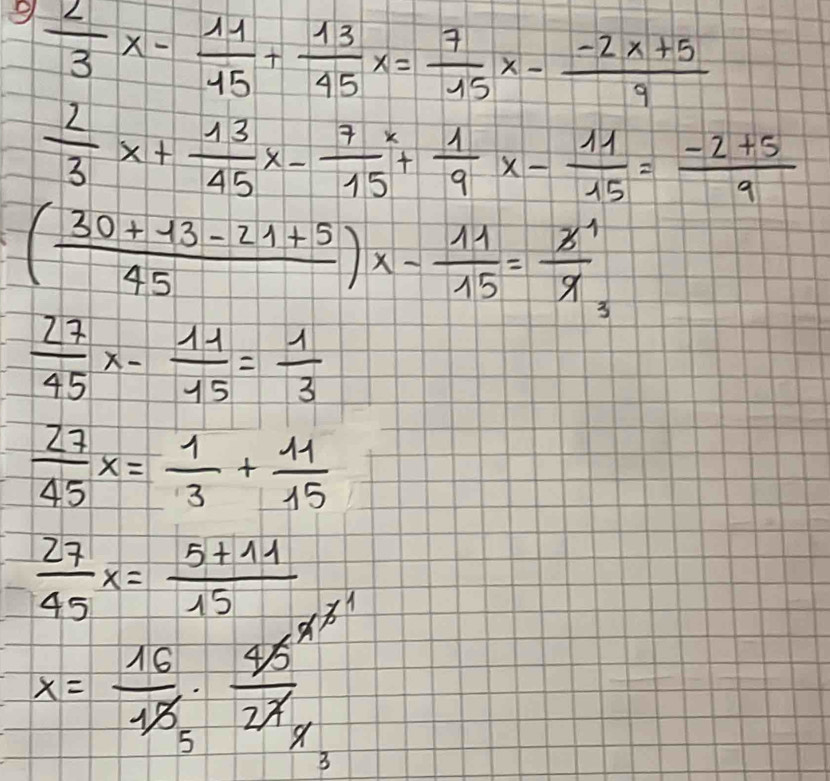 b) 2/3 x - 11/15 + 13/45 x = 7/15 x - (-2x+5)/9
2/3 x + 13/45 x - 7/15 x + 1/9 x - 11/15 = (-2+5)/9
((30+13-21+5)/45) x - 11/15 = 3/9 1 3
27/45 x - 11/15 = 1/3
27/45 x = 1/3 + 11/15
27/45 x = (5+11)/15
x = 16/15 · 45/27 5 9 3 1 9 3